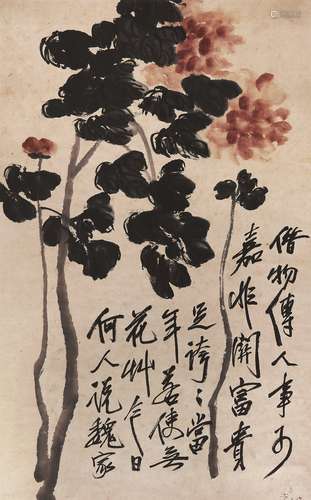 借物傳人事可
嘉非關富貴
足誇〻當
年若使無
花艸今日
何人說魏家